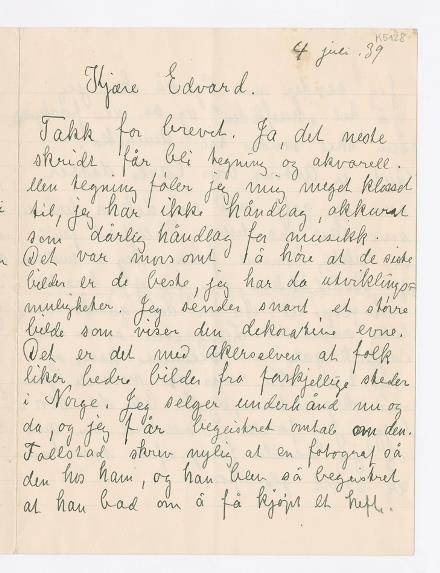 K5128
4 juli .39
Kjære Edvard.
Takk for brevet. Ja, det neste
skridt får bli tegning og akvarell.
Men tegning føler jeg mig meget klosset
til, jeg har ikke håndlag, akkurat
som dårlig håndlag for musikk.
Det var morsomt å höre at de siste
bilder er de beste, jeg har da utviklings=
muligheter. Jeg sender snart et större
bilde som viser din dekorative evne.
Det er det med akerselven at folk
liker bedre bilder fra forskjellige steder
i Norge. Jeg selger underhånd nu og
da, og jeg får begeistret omtale om den.
skrev nylig at en fotograf så
den hos ham, og han blev så begeistret
at han bad om å få kjøpt et hefte.